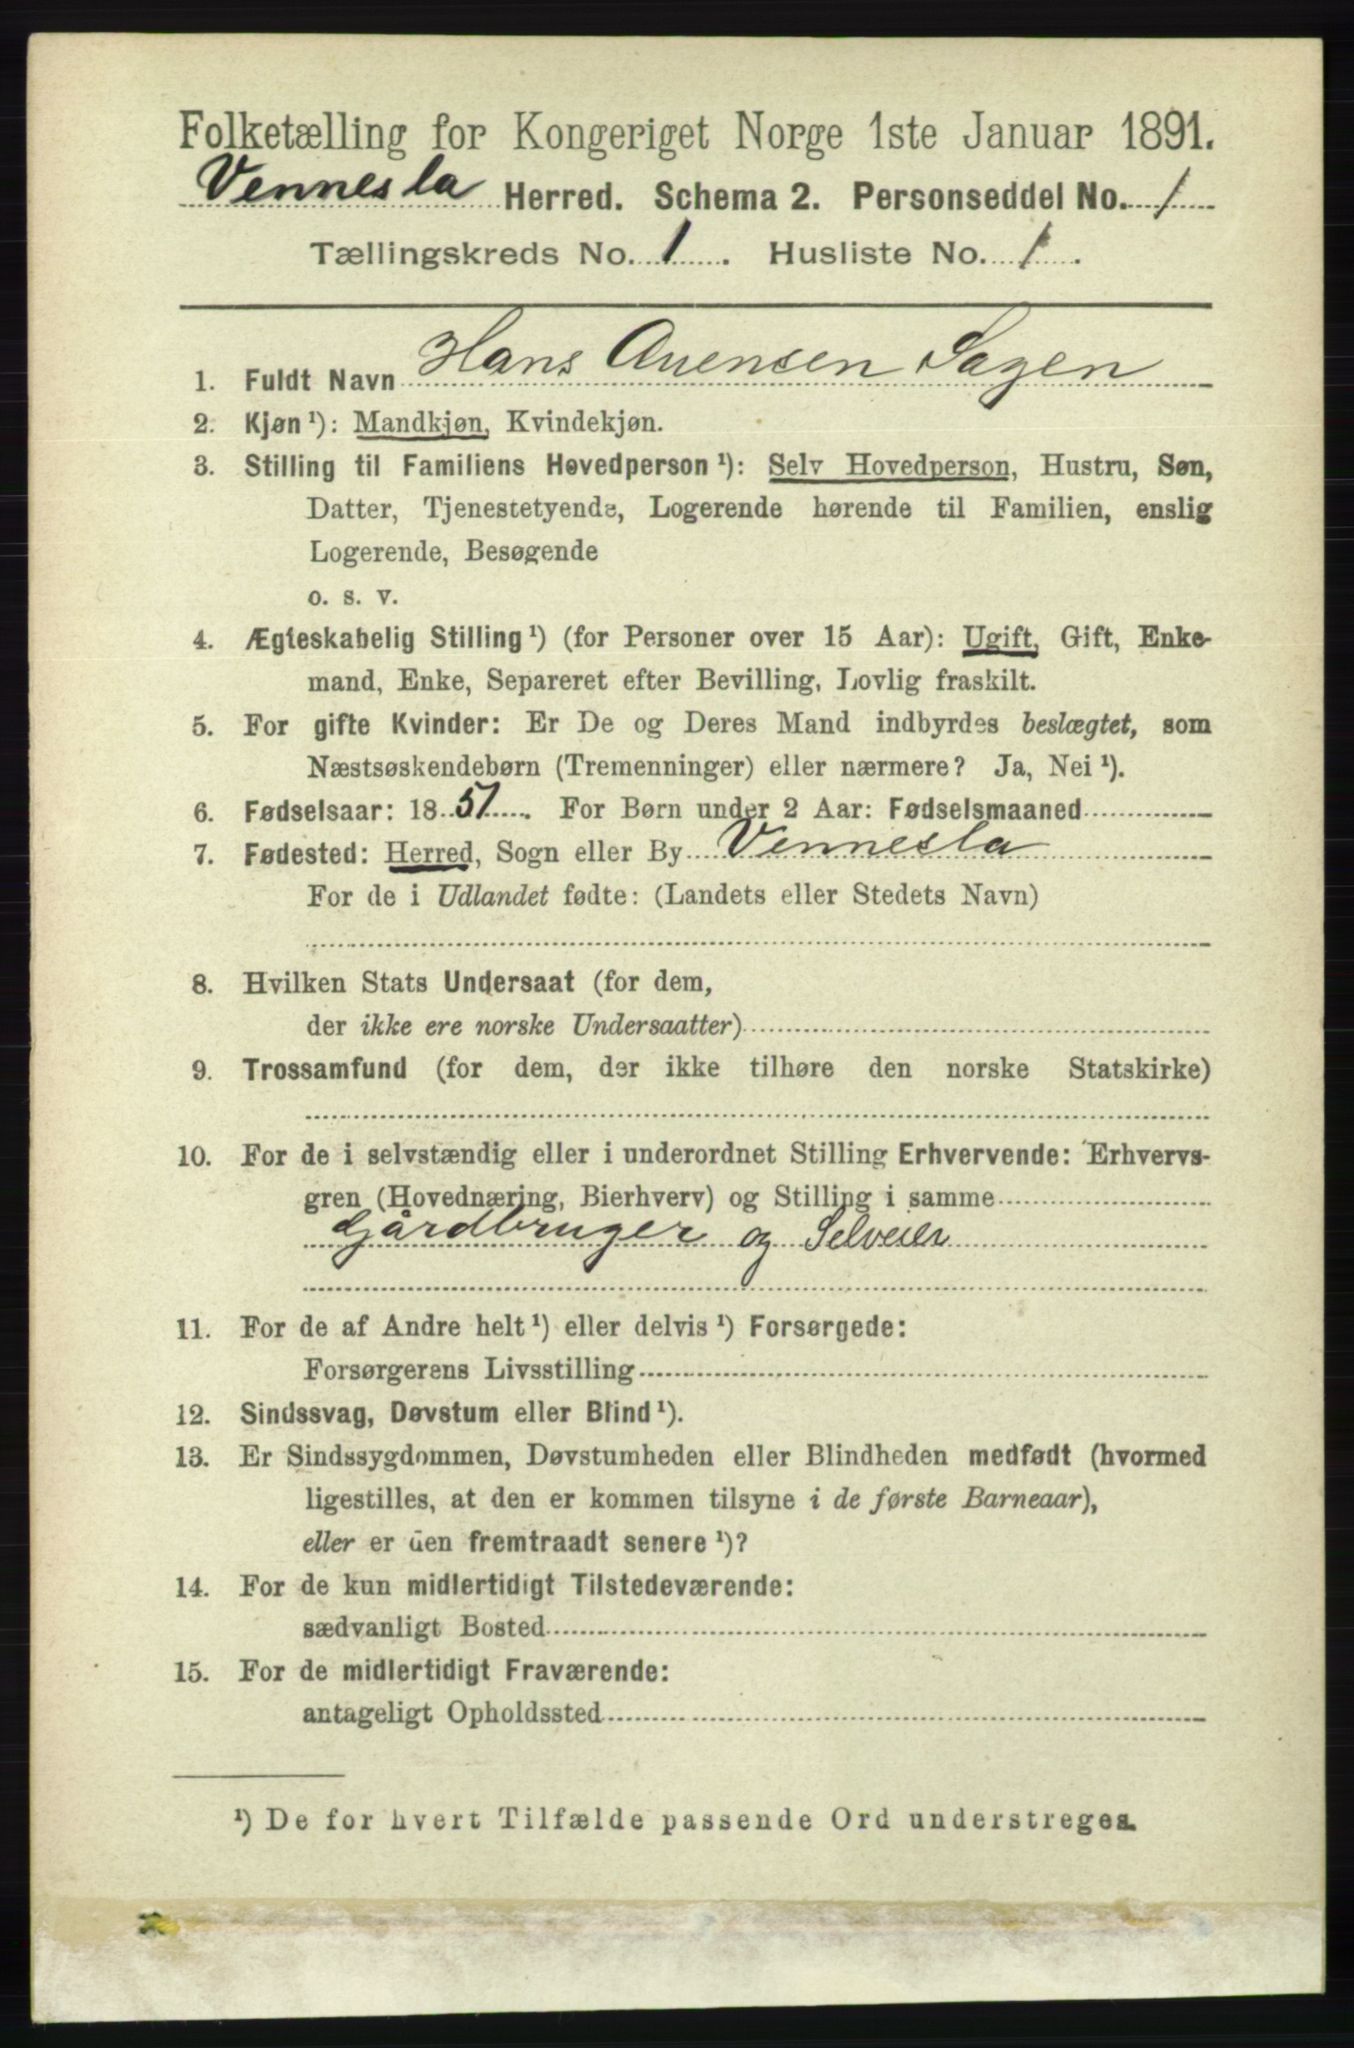 Folketælling for Kongeriget Norge 1ste Januar 1891.
Vennesla Herred. Schema 2. Personseddel No. 1
Tællingskreds No. 1. Husliste No. 1.
1. Fuldt Navn Hans Auensen Sagen
2. Kjøn¹): Mandkjøn, Kvindekjøn.
3. Stilling til Familiens Hovedperson¹): Selv Hovedperson, Hustru, Søn,
Datter, Tjenestetyende, Logerende hørende til Familien, enslig
Logerende, Besøgende
o. s. v.
4. Ægteskabelig Stilling¹) (for Personer over 15 Aar): Ugift, Gift, Enke-
mand, Enke, Separeret efter Bevilling, Lovlig fraskilt.
5. For gifte Kvinder: Er De og Deres Mand indbyrdes beslægtet, som
Næstsøskendebørn (Tremenninger) eller nærmere? Ja, Nei¹).
6. Fødselsaar: 1851. For Børn under 2 Aar: Fødselsmaaned
7. Fødested: Herred, Sogn eller By Vennesla
For de i Udlandet fødte: (Landets eller Stedets Navn)
8. Hvilken Stats Undersaat (for dem,
der ikke ere norske Undersaatter)
9. Trossamfund (for dem, der ikke tilhøre den norske Statskirke)
10. For de i selvstændig eller i underordnet Stilling Erhvervende: Erhvervs-
gren (Hovednæring, Bierhverv) og Stilling i samme
Gårdbruger og Selveier
11. For de af Andre helt¹) eller delvis¹) Forsørgede:
Forsørgerens Livsstilling
12. Sindssvag, Døvstum eller Blind¹).
13. Er Sindssygdommen, Døvstumheden eller Blindheden medfødt (hvormed
ligestilles, at den er kommen tilsyne i de første Barneaar),
eller er den fremtraadt senere¹)?
14. For de kun midlertidigt Tilstedeværende:
sædvanligt Bosted
15. For de midlertidigt Fraværende:
antageligt Opholdssted
¹) De for hvert Tilfælde passende Ord understreges.